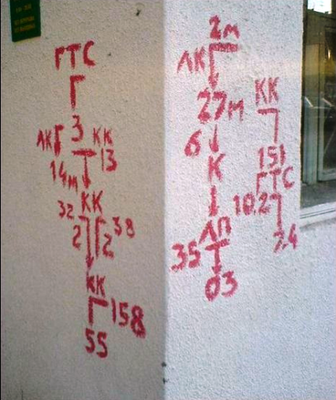 ГТС
3
ЛК КК
14м 13
КК
32 38
2 2
КК
158
55
2м
ЛК
27м
6
К
ЛП
35
03
КК
151
ГТС
10.2
24